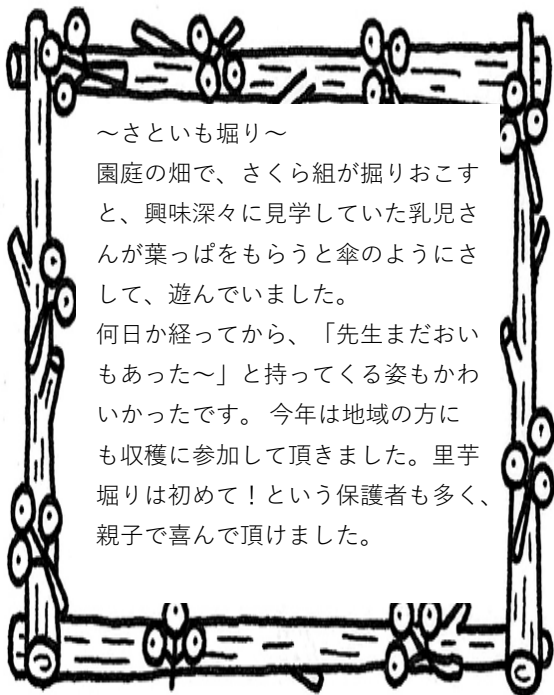 ～さといも堀り～
園庭の畑で、さくら組が掘りおこす
と、興味深々に見学していた乳児さ
んが葉っぱをもらうと傘のようにさ
して、遊んでいました。
何日か経ってから、「先生まだおい
もあった～」と持ってくる姿もかわ
いかったです。 今年は地域の方に
も収穫に参加して頂きました。里芋
堀りは初めて！という保護者も多く、
親子で喜んで頂けました。